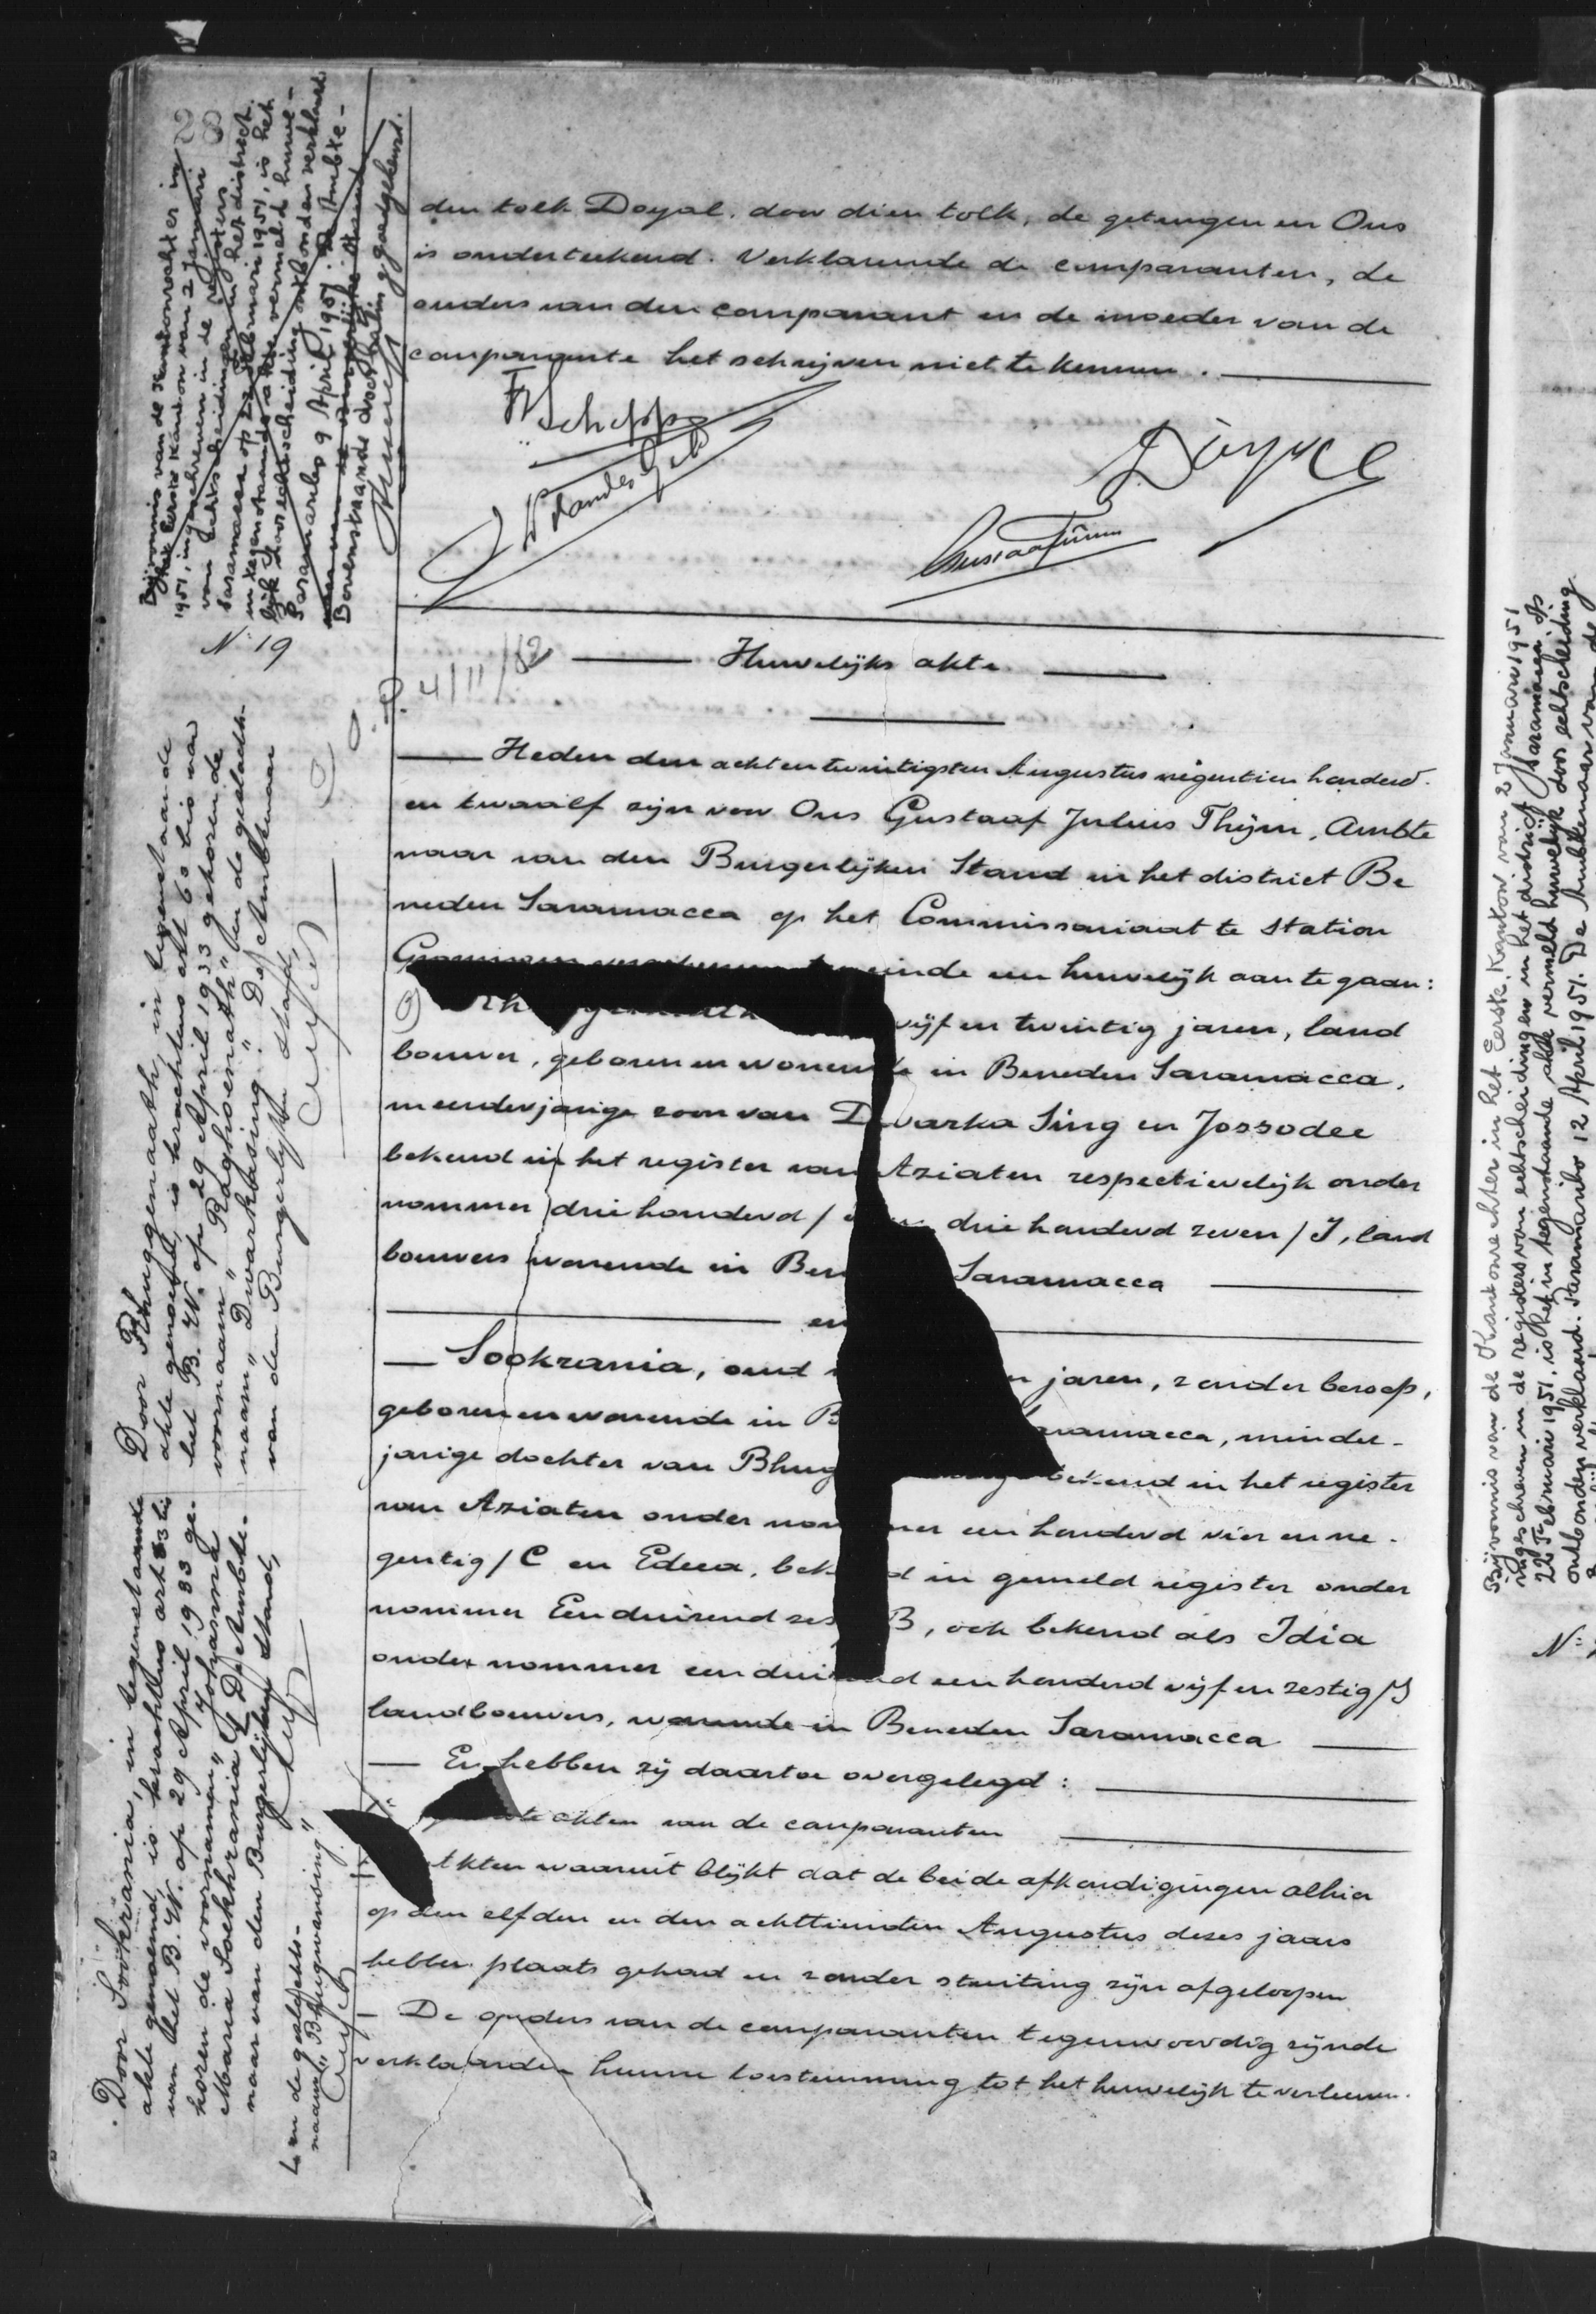 28
den tolk Doyal, door dien tolk, de getuigen en Ons
is onderteekend. Verklarende de comparanten, de
ouders van den comparant en de moeder van de
comparante het schrijven niet te kennen.
Bij vonnis van de Kantonrechter in
het Eerste Kanton van 2 Januari
1951, ingeschreven in de registers
van echtscheidingen in het district
Saramacca op 22 Februari 1951, is het
in tegenstaande akte vermeld huwe-
lijk door echtscheiding ontbonden verklaard.
Paramaribo 9 April 1951. De Ambte-
Bovenstaande doorhaling goedgekeurd.
No 19
4/11/62
Huwelijks akte
Heden den achtentwintigsten Augustus negentien honderd
en twaalf zijn voor Ons Gustaaf Julius Thijm, Ambte
naar van den Burgerlijken Stand in het district Be
neden Saramacca op het Commissariaat te station
einde een huwelijk aan te gaan:
vijf en twintig jaren, land
bouwer, geboren en wonende in Beneden Saramacca,
meerderjarige zoon van Dwarka Sing en Jossodee
bekend in het register van Aziaten respectievelijk onder
nommer drie honderd / drie honderd zeven / J, land
bouwers wonende in Ben Saramacca
en
Sookrania, oud n jaren, zonder beroep,
geboren en wonende in B ramacca, minder-
jarige dochter van Bhug bekend in het register
van Aziaten onder nommer een honderd vier en ne-
gentig / C en Edeea, bek d in gemeld register onder
nommer Een duizend zes B, ook bekend als Idia
onder nommer een duizend een honderd vijf en zestig / J
landbouwers, wonende in Beneden Saramacca
En hebben zij daartoe overgelegd:
te akten van de comparanten
Akten waaruit blijkt dat de beide afkondigingen alhier
op den elfden en den achttienden Augustus dezes jaars
hebben plaats gehad en zonder stuiting zijn afgeloopen
De ouders van de comparanten tegenwoordig zijnde
verklaarden hunne toestemming tot het huwelijk te verleenen.
Door Bhuggenaath, in tegenstaande
akte genoemd, is krachtens art 60 bis van
het B.W. op 29 April 1933 gekozen de
voornaam "Raghoenath" en de geslachts-
naam "Dwarkasing". De Ambtenaar
van den Burgerlijken stand,
Door Sookrania, in tegenstaande
akte genoemd, is krachtens art 63 bis
van het B.W. op 29 April 1933 ge-
kozen de voornamen "Johanna
Maria Soekhrania" De Ambte-
naar van den Burgerlijken stand,
en de geslachts-
naam "Bhugwansing"
Bij vonnis van de Kantonrechter in het Eerste Kanton van 2 Januari 1951
ingeschreven in de registers van echtscheidingen in het district Saramacca op
22 Februari 1951, is het in tegenstaande akte vermeld huwelijk door echtscheiding
ontbonden verklaard. Paramaribo 12 April 1951. De Ambtenaar van de